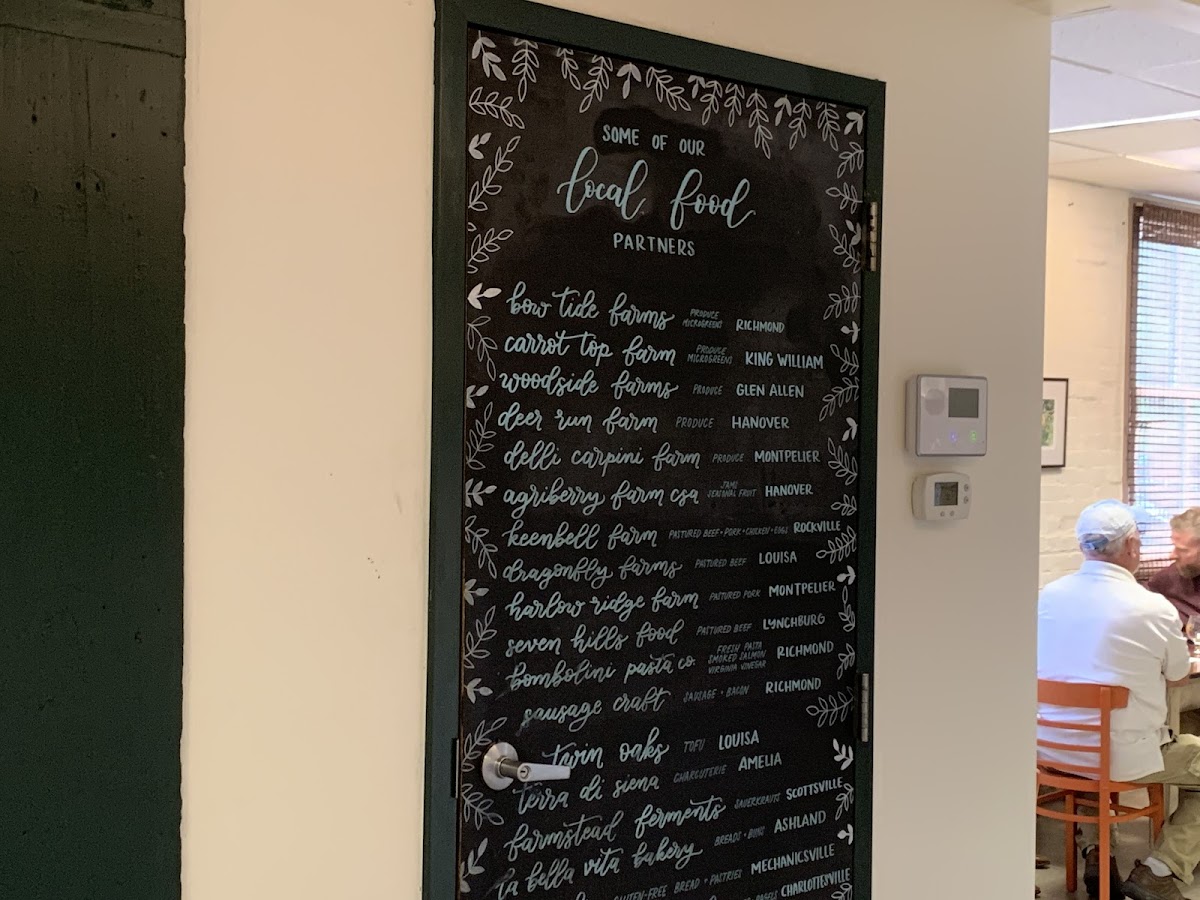 SOME OF OUR
local food
PARTNERS
bow tide farms PRODUCE MICROGREENS RICHMOND
carrot top farm PRODUCE MICROGREENS KING WILLIAM
woodside farms PRODUCE GLEN ALLEN
deer run farm PRODUCE HANOVER
delli carpini farm PRODUCE MONTPELIER
agriberry farm csa JAMS SEASONAL FRUIT HANOVER
keenbell farm PASTURED BEEF • PORK • CHICKEN • EGGS ROCKVILLE
dragonfly farms PASTURED BEEF LOUISA
harlow ridge farm PASTURED PORK MONTPELIER
seven hills food PASTURED BEEF LYNCHBURG
bombolini pasta co. FRESH PASTA SMOKED SALMON VIRGINIA VINEGAR RICHMOND
sausage craft SAUSAGE • BACON RICHMOND
twin oaks TOFU LOUISA
terra di siena CHARCUTERIE AMELIA
farmstead ferments SAUERKRAUTS SCOTTSVILLE
la bella vita bakery BREADS • BUNS ASHLAND
GLUTEN-FREE BREAD • PASTRIES MECHANICSVILLE
CHARLOTTESVILLE